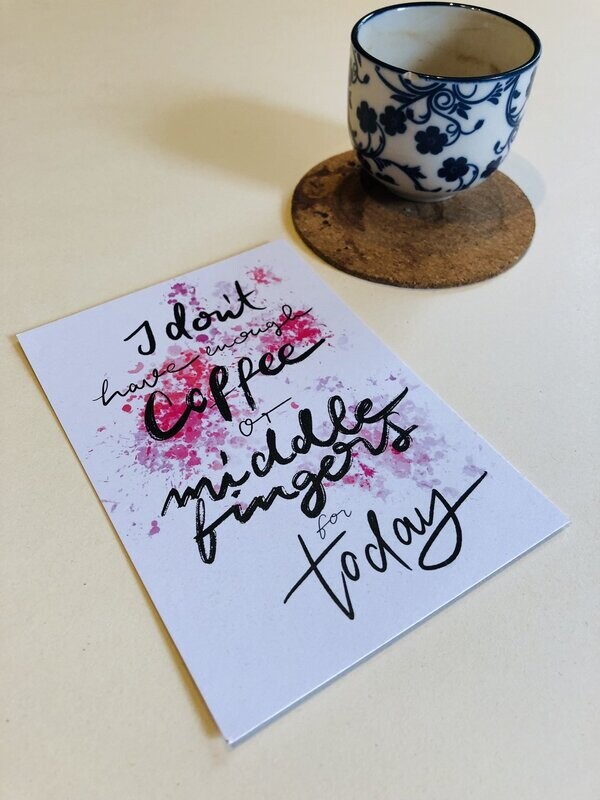 I don't
have enough
Coffee
or
middle
fingers
for
today